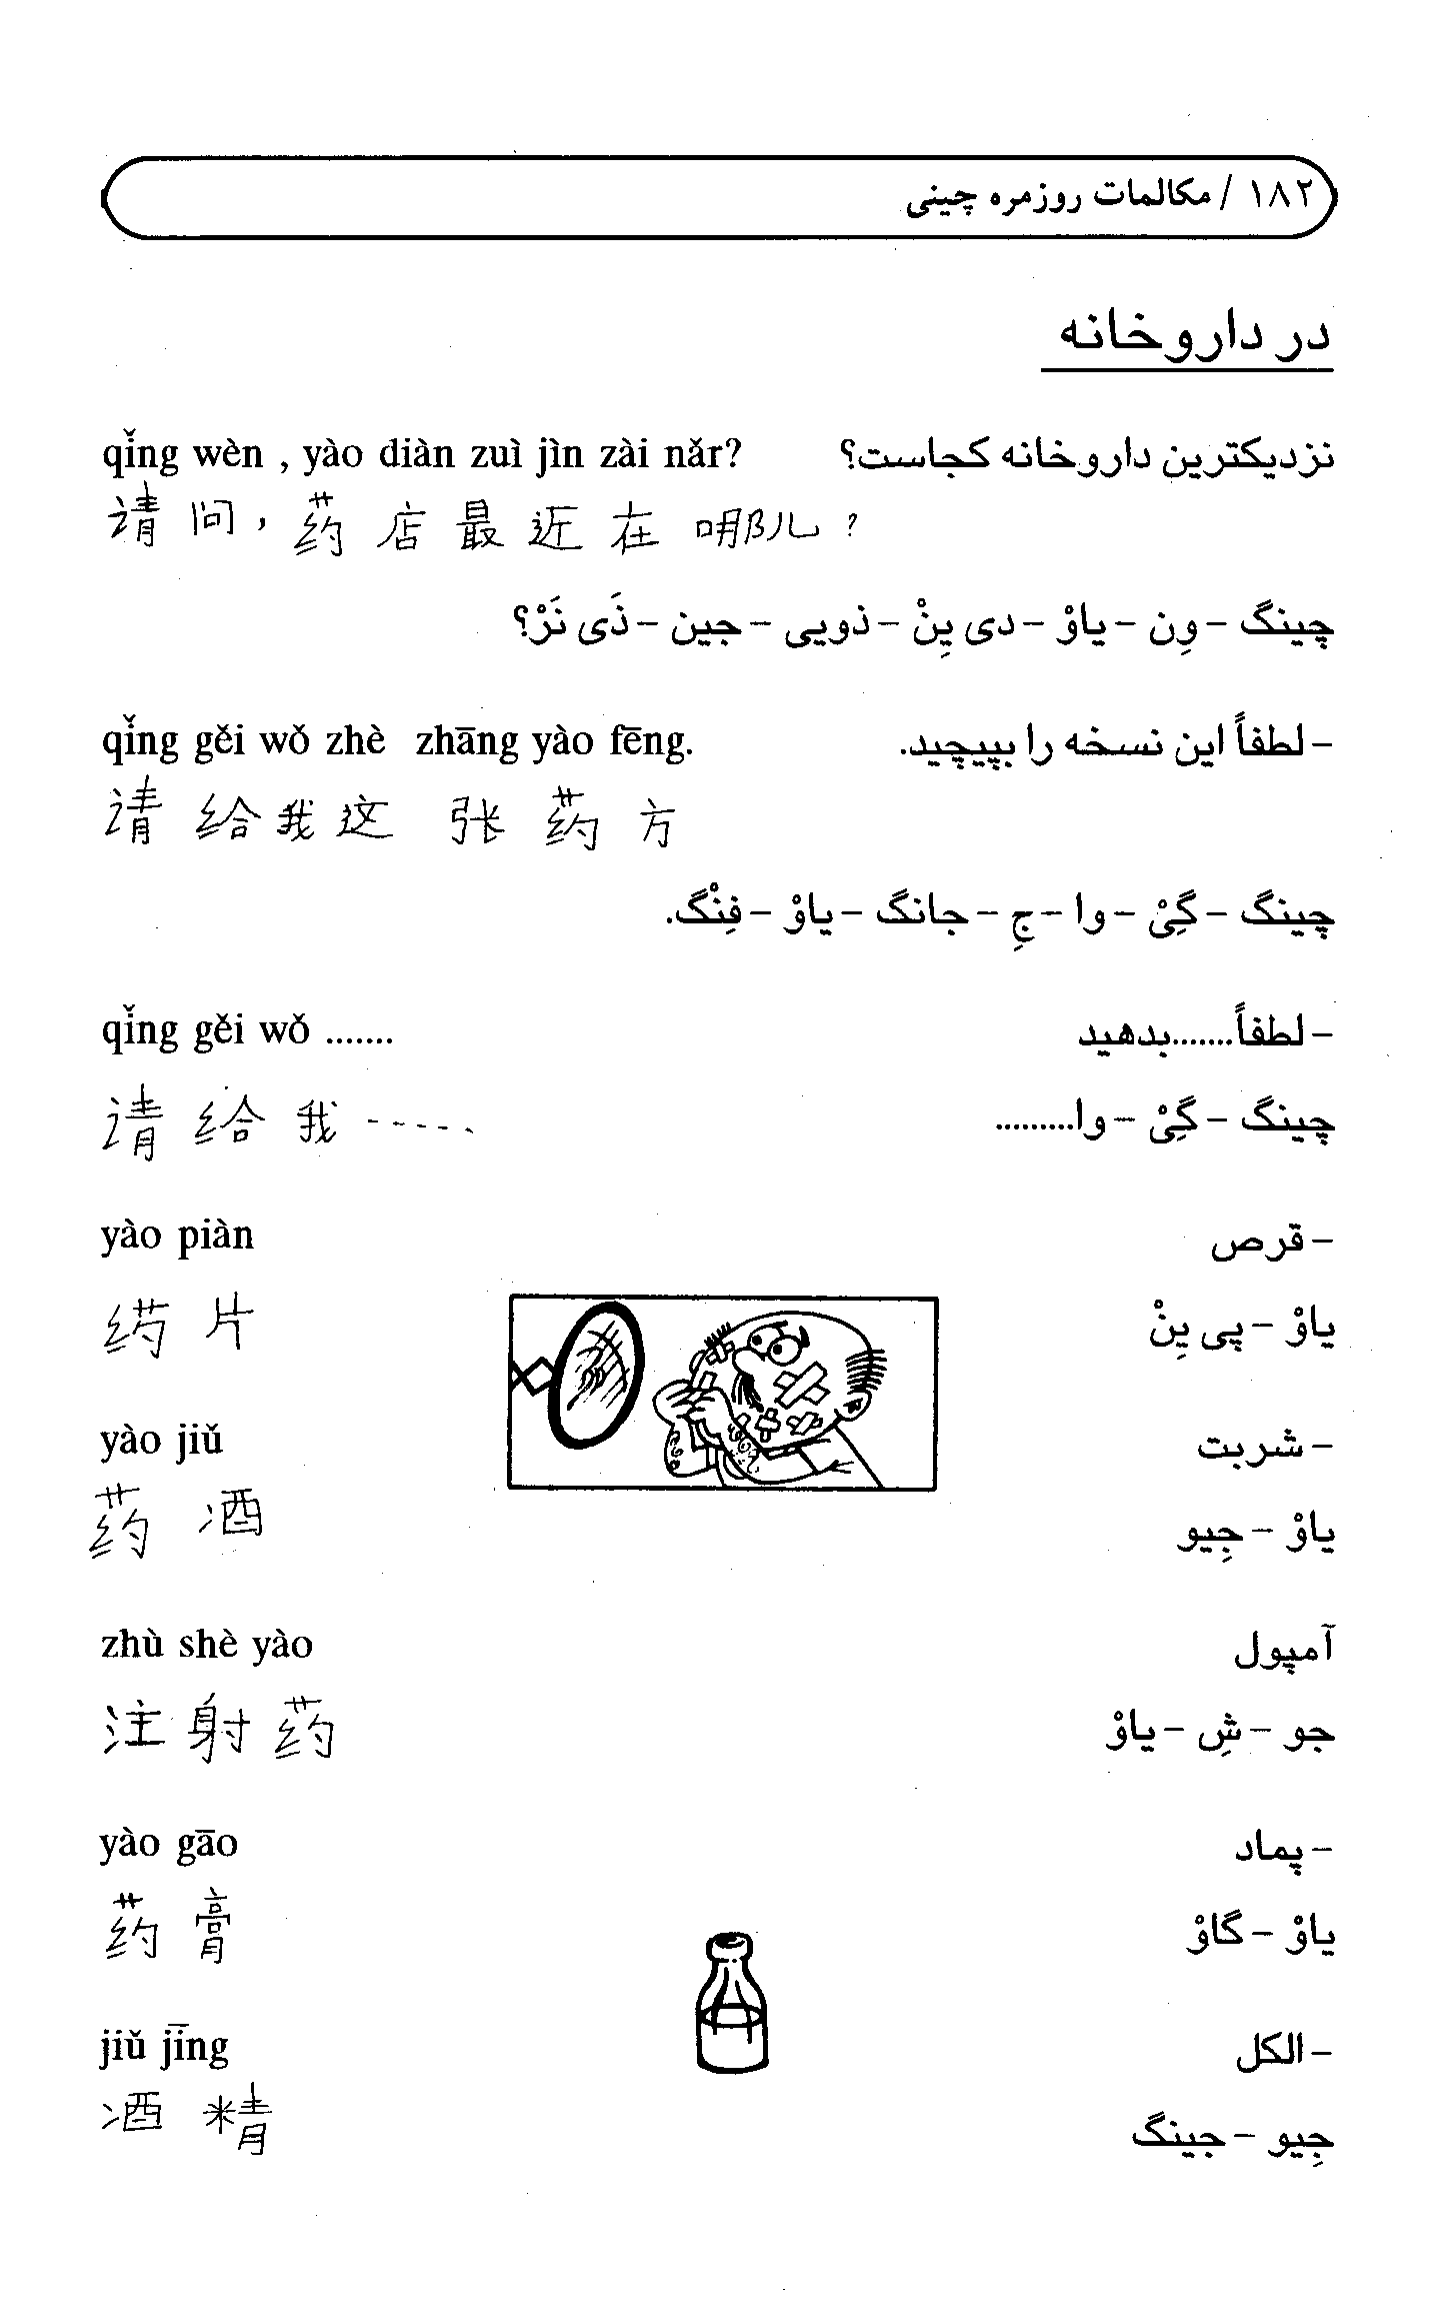 ۱۸۲ / مکالمات روزمره چینی
در داروخانه
نزدیکترین داروخانه کجاست؟ qǐng wèn , yào diàn zuì jìn zài nǎr?
请问，药店最近在哪儿？
چینگ - وِن - یاوْ - دی یِنْ - ذویی - جین - ذَی نَرْ؟
- لطفاً این نسخه را بپیچید. qǐng gěi wǒ zhè zhāng yào fēng.
请给我这张药方
چینگ - گِیْ - وا - جِ - جانگ - یاوْ - فِنْگ.
- لطفاً.......بدهید qǐng gěi wǒ .......
请给我-----
چینگ - گِیْ - وا.........
- قرص yào piàn
药片
یاوْ - پی یِنْ
- شربت yào jiǔ
药酒
یاوْ - جِیو
آمپول zhù shè yào
注射药
جو - شِ - یاوْ
- پماد yào gāo
药膏
یاوْ - گاوْ
- الکل jiǔ jīng
酒精
جِیو - جینگ